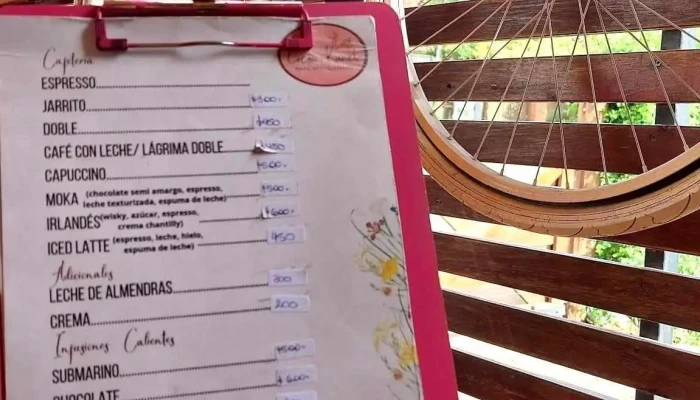 Cafetería
ESPRESSO
JARRITO $300.-
DOBLE $450
CAFÉ CON LECHE/ LÁGRIMA DOBLE $450
CAPUCCINO $500.-
MOKA (chocolate semi amargo, espresso,
leche texturizada, espuma de leche) $500.-
IRLANDÉS (wisky, azúcar, espresso,
crema chantilly) $600.-
ICED LATTE (espresso, leche, hielo,
espuma de leche) 450
Adicionales
LECHE DE ALMENDRAS 300
CREMA 200
Infusiones Calientes
SUBMARINO $500.-
CHOCOLATE $600.-